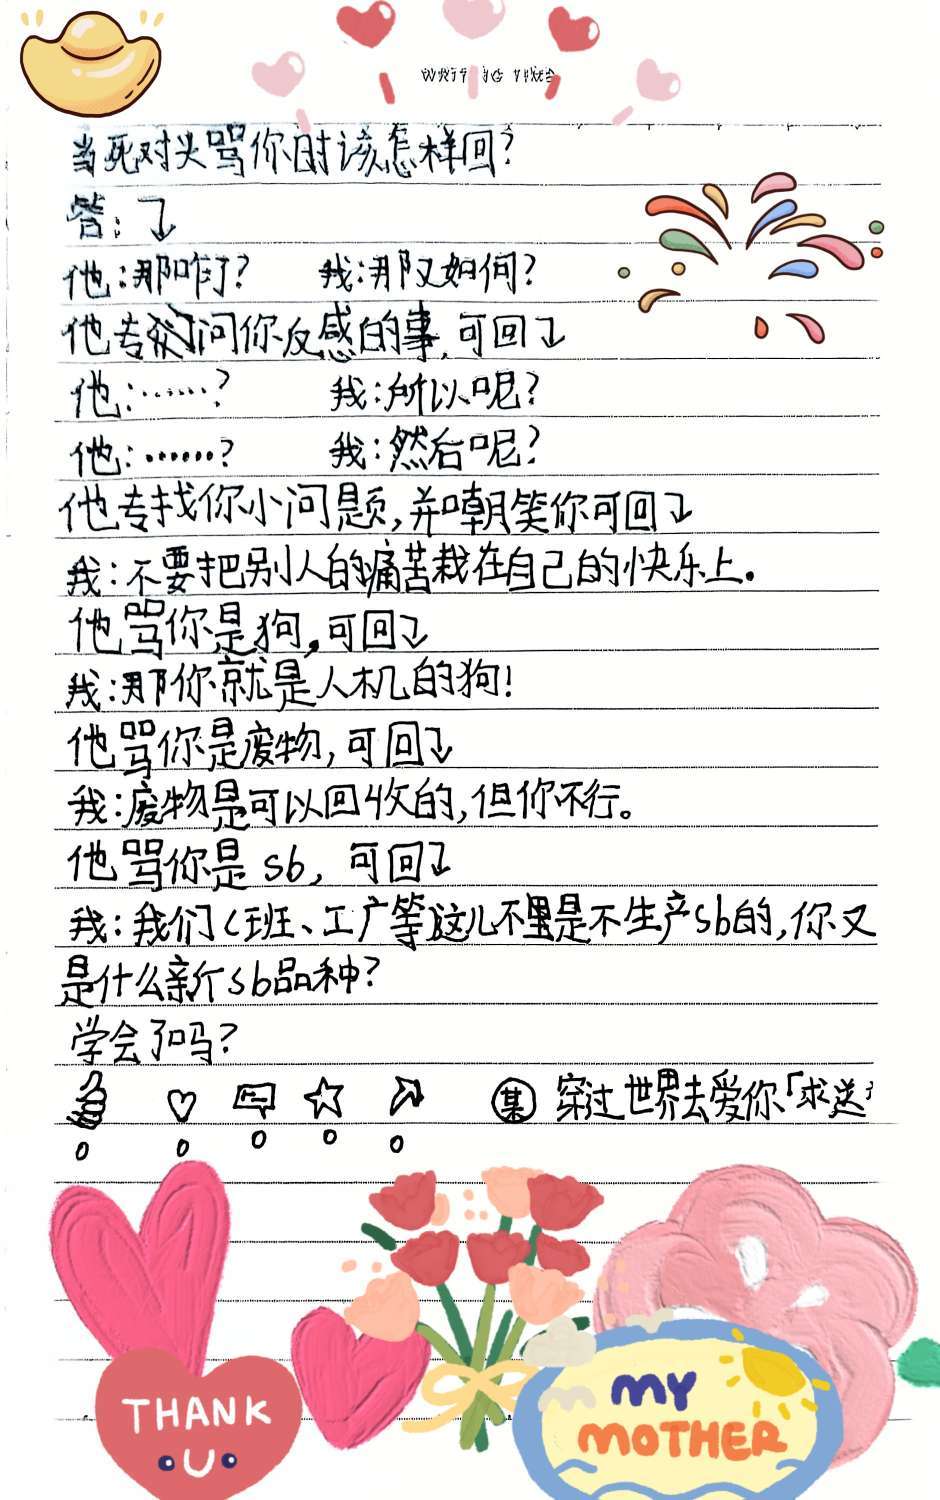 当死对头骂你时该怎样回?
答:
他:那咋了? 我:那又如何?
他专门问你反感的事,可回
他:……? 我:所以呢?
他:……? 我:然后呢?
他专找你小问题,并嘲笑你可回
我:不要把别人的痛苦栽在自己的快乐上。
他骂你是狗,可回
我:那你就是人机的狗!
他骂你是废物,可回
我:废物是可以回收的,但你不行。
他骂你是sb,可回
我:我们(班、工厂等)这儿不里是不生产sb的,你又
是什么新斤sb品种?
学会了吗?
某 穿过世界去爱你「求送
0 0 0 0 0
THANK
U
MY
MOTHER